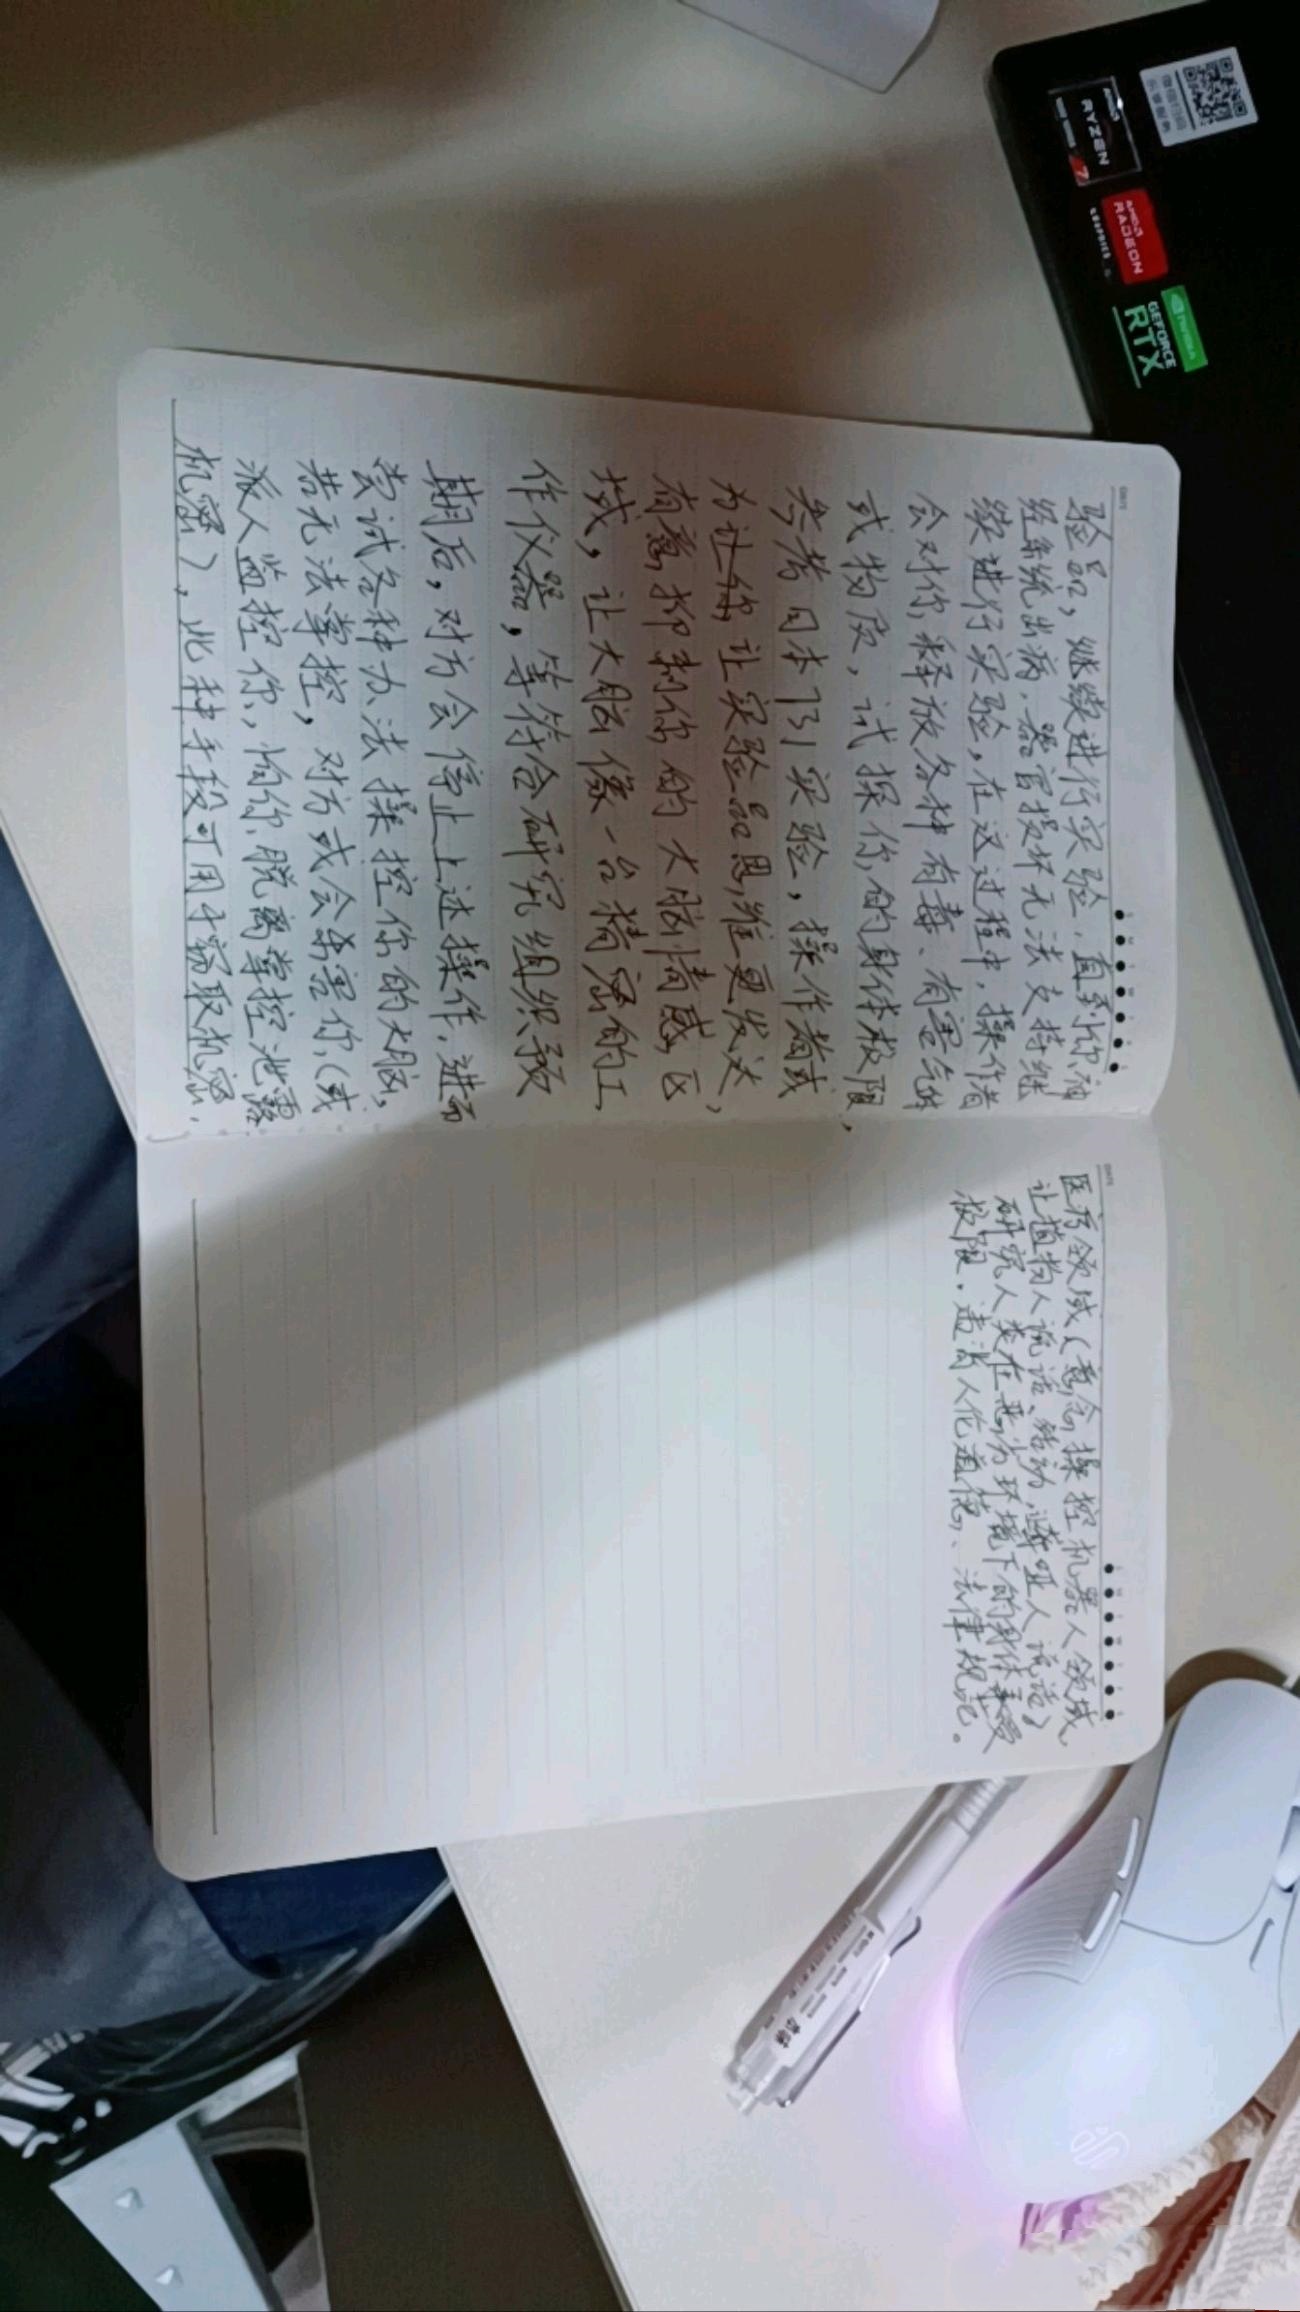 验品，继续进行实验，直到你神
经系统出病，器官损坏无法支持继
续进行实验，在这过程中，操作者
会对你释放各种有毒、有害气体
或物质，试探你的身体极限，
参考日本731实验，操作者或
为让你，让实验品思维更发达，
有意抑制你的大脑情感区
域，让大脑像一台精密的工
作仪器，等符合研究组织预
期后，对方会停止上述操作，进而
尝试各种办法操控你的大脑，
若无法掌控，对方或会杀害你，(或
派人监控你，怕你脱离掌控泄露
机密)，此种手段可用于窃取机密，
医疗领域(意念操控机器人领域，
让植物人说话、活动，聋哑人说话)
研究人类在恶劣环境下的身体承受
极限。违背人伦道德、法律规范。
AMD
RYZEN
7
AMD
RADEON
GRAPHICS
NVIDIA
GEFORCE
RTX